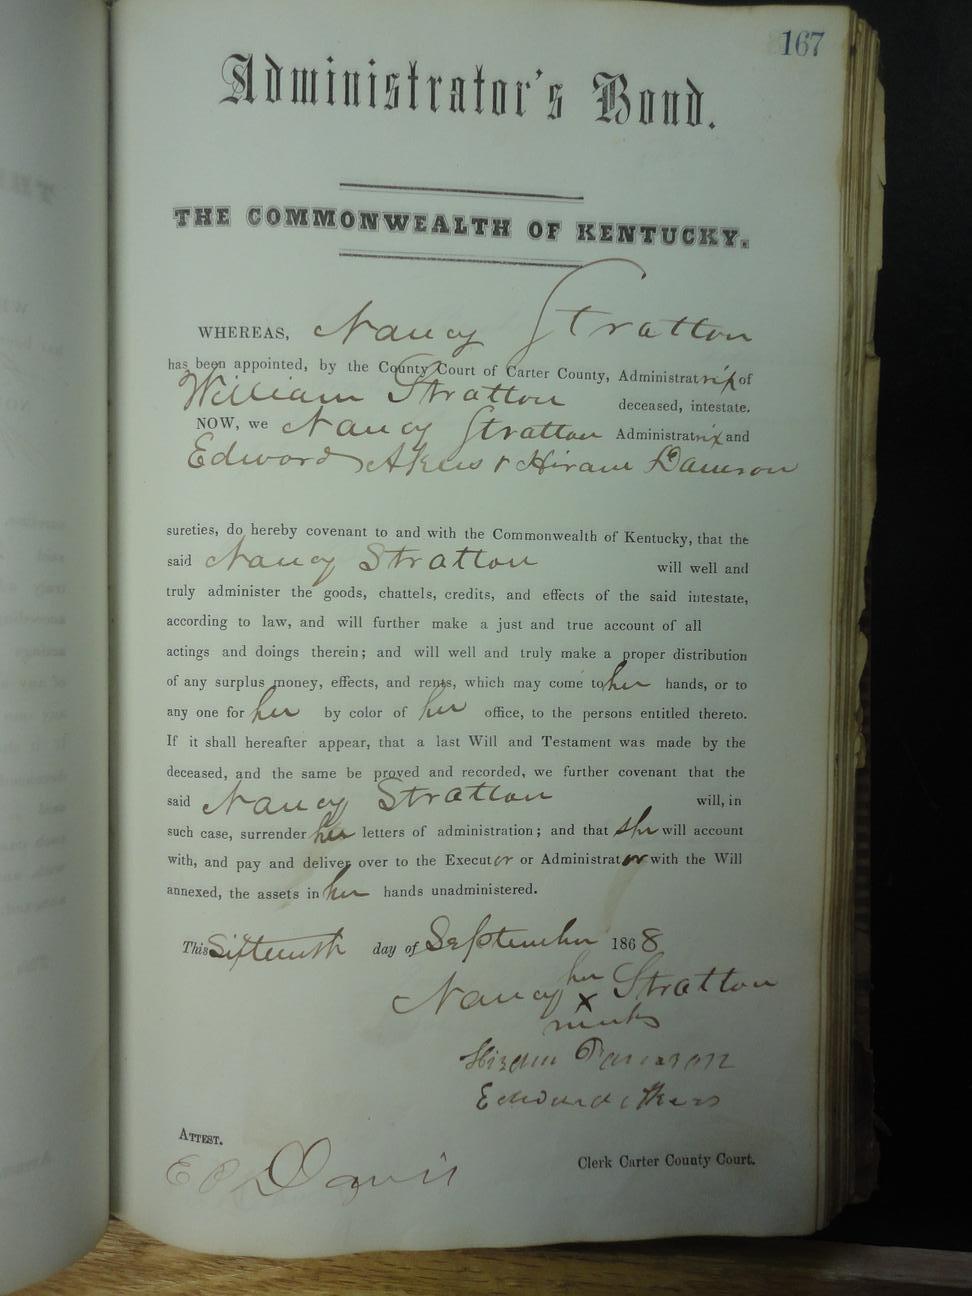 167
Administrator's Bond.
THE COMMONWEALTH OF KENTUCKY.
WHEREAS, Nancy Stratton
has been appointed, by the County Court of Carter County, Administratrix of
William Stratton deceased, intestate.
NOW, we Nancy Stratton Administratrix and
Edward Akers & Hiram Damron
sureties, do hereby covenant to and with the Commonwealth of Kentucky, that the
said Nancy Stratton will well and
truly administer the goods, chattels, credits, and effects of the said intestate,
according to law, and will further make a just and true account of all
actings and doings therein; and will well and truly make a proper distribution
of any surplus money, effects, and rents, which may come to her hands, or to
any one for her by color of her office, to the persons entitled thereto.
If it shall hereafter appear, that a last Will and Testament was made by the
deceased, and the same be proved and recorded, we further covenant that the
said Nancy Stratton will, in
such case, surrender her letters of administration; and that she will account
with, and pay and deliver over to the Executor or Administrator with the Will
annexed, the assets in her hands unadministered.
This Sixteenth day of September 1868
her
Nancy X Stratton
mark
Hiram Damron
Edward Akers
ATTEST.
Davis Clerk Carter County Court.